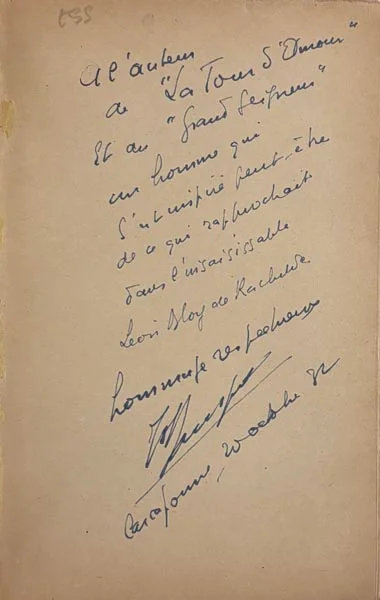 ESS
A l'auteur
de "La Tour d'Amour"
Et du "Grand Seigneur"
un homme qui
s'est inspiré peut-être
de ce qui rapprochait
dans l'insaisissable
Léon Bloy de Rachilde.
hommage respectueux
Carcassonne, octobre 32